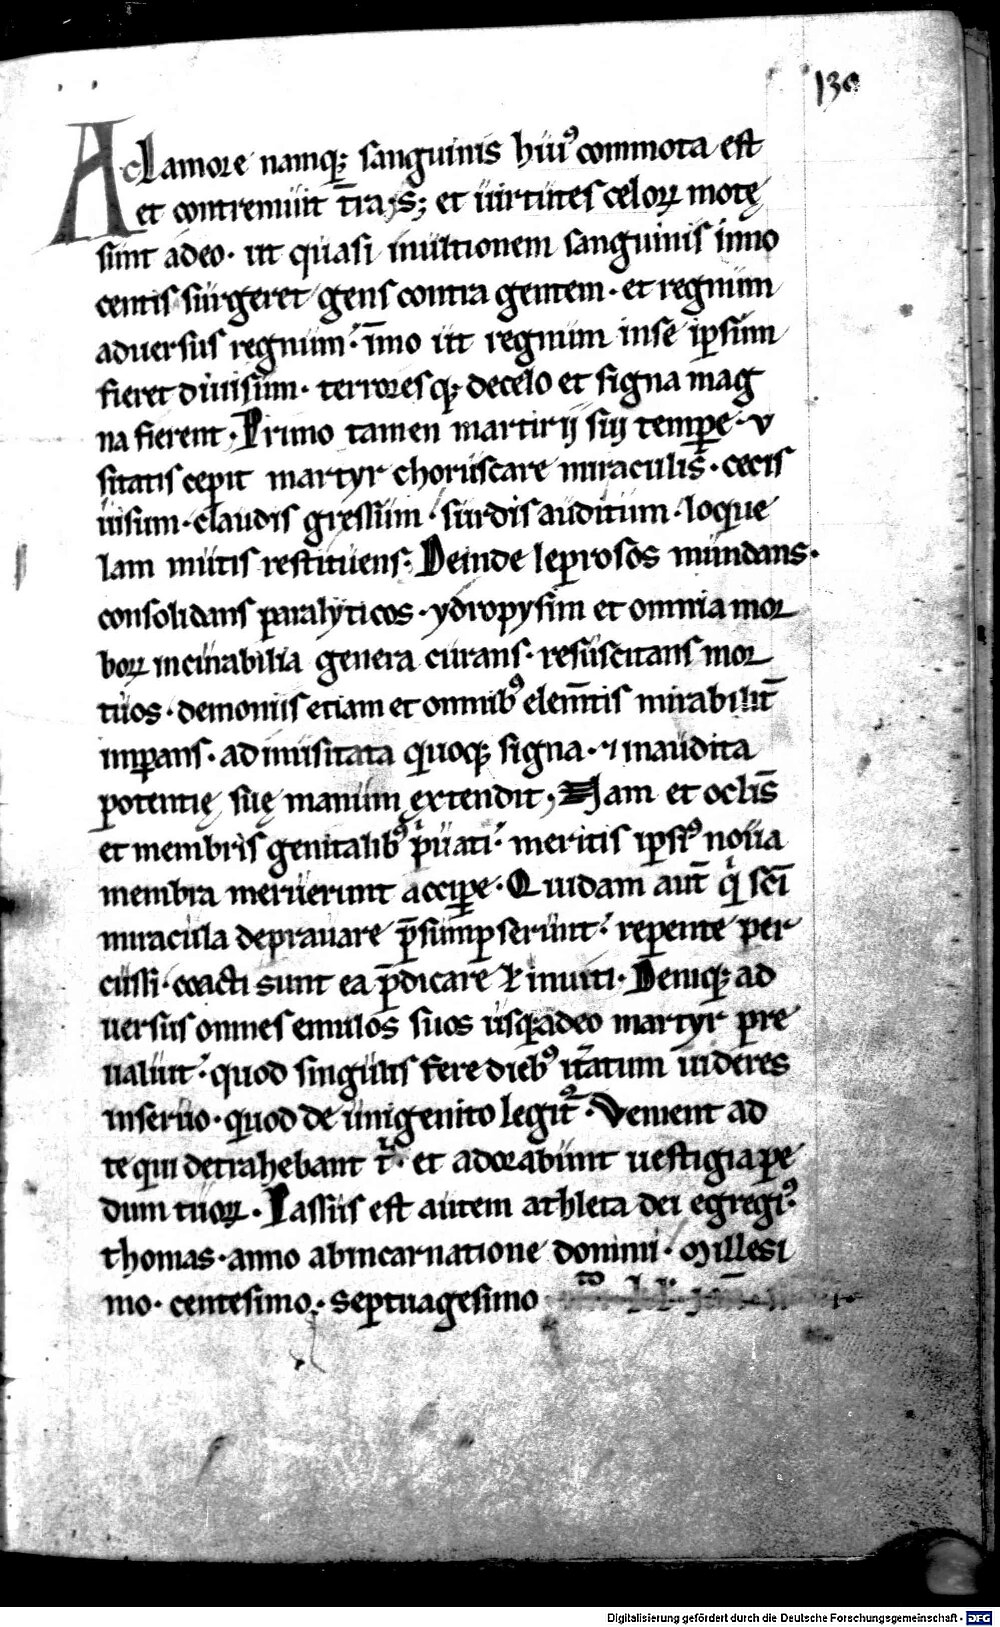 130
Aclamore namq; sanguinis hui᷒ commota est
et contremuit t̄ra,s; et uirtutes celoꝝ motę
sunt adeo· ut quasi inultionem sanguinis inno
centis surgeret gens contra gentem· et regnum
aduersus regnum· īmo ut regnum inse ip̄sum
fieret diuisum· terroresq; decelo et signa mag
na fierent, Primo tamen martirij sui temp̲e· v
sitatis cepit martyr choruscare miraculis· cecis
uisum· claudis gressum· surdis auditum· loque
lam mutis restituens; Deinde leprosos mundans·
consolidans ꝑaralyticos· ydropysim et omnia mor
boꝝ incurabilia genera curans· resuscitans mor
tuos· demoniis etiam et omnib᷒ elem̄tis mirabilit̄
imꝑans· ad inusitata quoq; signa· ⁊ inaudita
potentię suę manum extendit, Nam et oclis̄
et membris genitalib᷒ pͥuati· meritis ipsi᷒ noua
membra meruerunt acciꝑe· Quidam aut̄ qͥ sc̄i
miracula deprauare p̄sumpserunt· repente per
cussi· coacti sunt ea p̄dicare ł inuiti· Deniq; ad
uersus omnes emulos suos usq;adeo martyr pre
ualuit· quod singulis fere dieb᷒ it̄atum uideres
inseruo· quod de unigenito legit᷑· Venient ad
te qui detrahebant t̄· et adorabunt uestigia pe
dum tuoꝝ· Passus est autem athleta dei egregi᷒·
thomas· anno abincarnatione domini· Millesi
mo· centesimo· septuagesimo
Digitalisierung gefördert durch die Deutsche Forschungsgemeinschaft - DFG